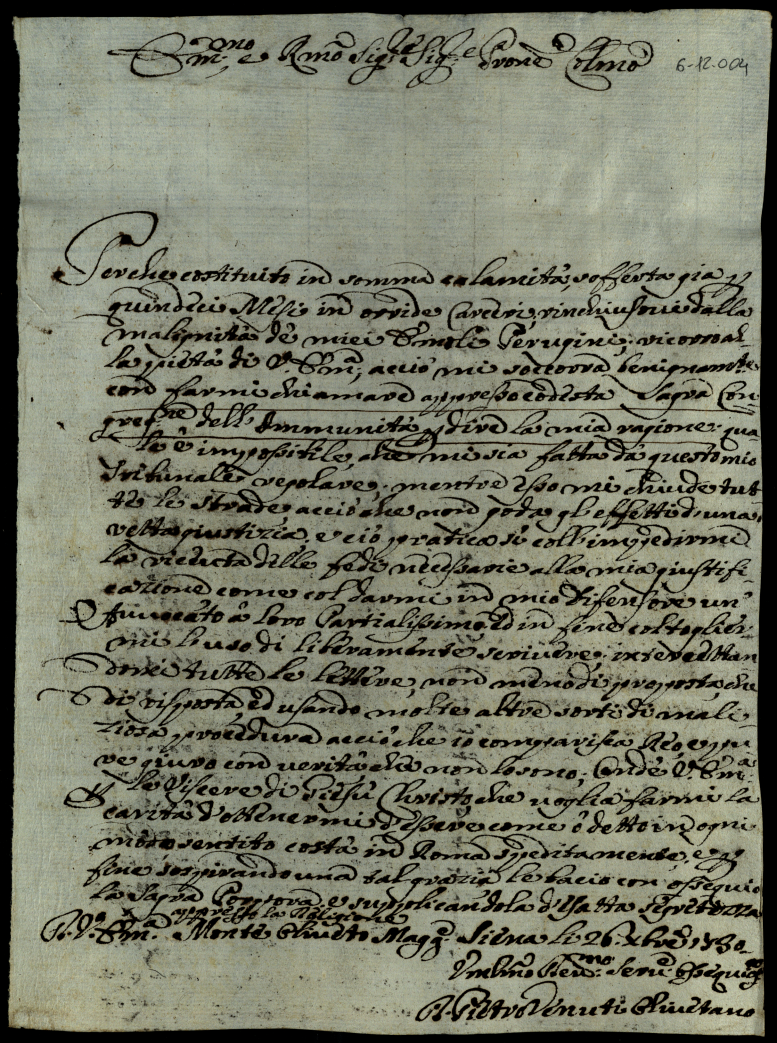 Em.mo e Rmo Sig.re Sig.re e Prone Colmo
6-12.004
Perche costituito in somma calamità, sofferta gia p
quindeci Mesi in orride Carceri, rinchiusovi dalla
malignità de miei Emoli Perugini; ricorro al-
la pietà di V. Em.a, acciò mi soccorra benignam.te
con farmi chiamare appresso codesta Sagra Con
greg.ne dell'Immunità p dire la mia ragione; qua
le è impossibile, che mi sia fatta da questo mio
Tribunale regolare; mentre esso mi chiude tut-
te le strade acciò che non goda gl'effetti d'una
retta giustizia, e ciò pratica sì coll'impedirmi
la veduta delle fedi necessarie alla mia giustifi
cazione come col darmi in mio difensore un'
Avvocato a loro Partialissimo, ed in fine col toglier
mi l'uso di liberamente scrivere; intercettan
domi tutte le lettere, non meno di proposta, che
di risposta ed usando molte altre sorti di mali-
ziosa procedura acciò che io comparisca Reo, e pu
re giuro con verità che non lo sono; Onde V. Em.a
p le Viscere di Giesù Christo, che voglia farmi la
carità d'ottenermi d'essere come ò detto in ogni
modo sentito costà in Roma speditamente, e p
fine sospirando una tal grazia le bacio con ossequio
la Sagra Porpora, e supplicandola d'esatta segretezza
appresso la Religione
D. V. Em.a Monte Oliveto Magg.e Siena li 26 Xbre 1730
Umilmo Rev.mo Serv.e Osseq.mo
D. Pietro Venuti Olivetano